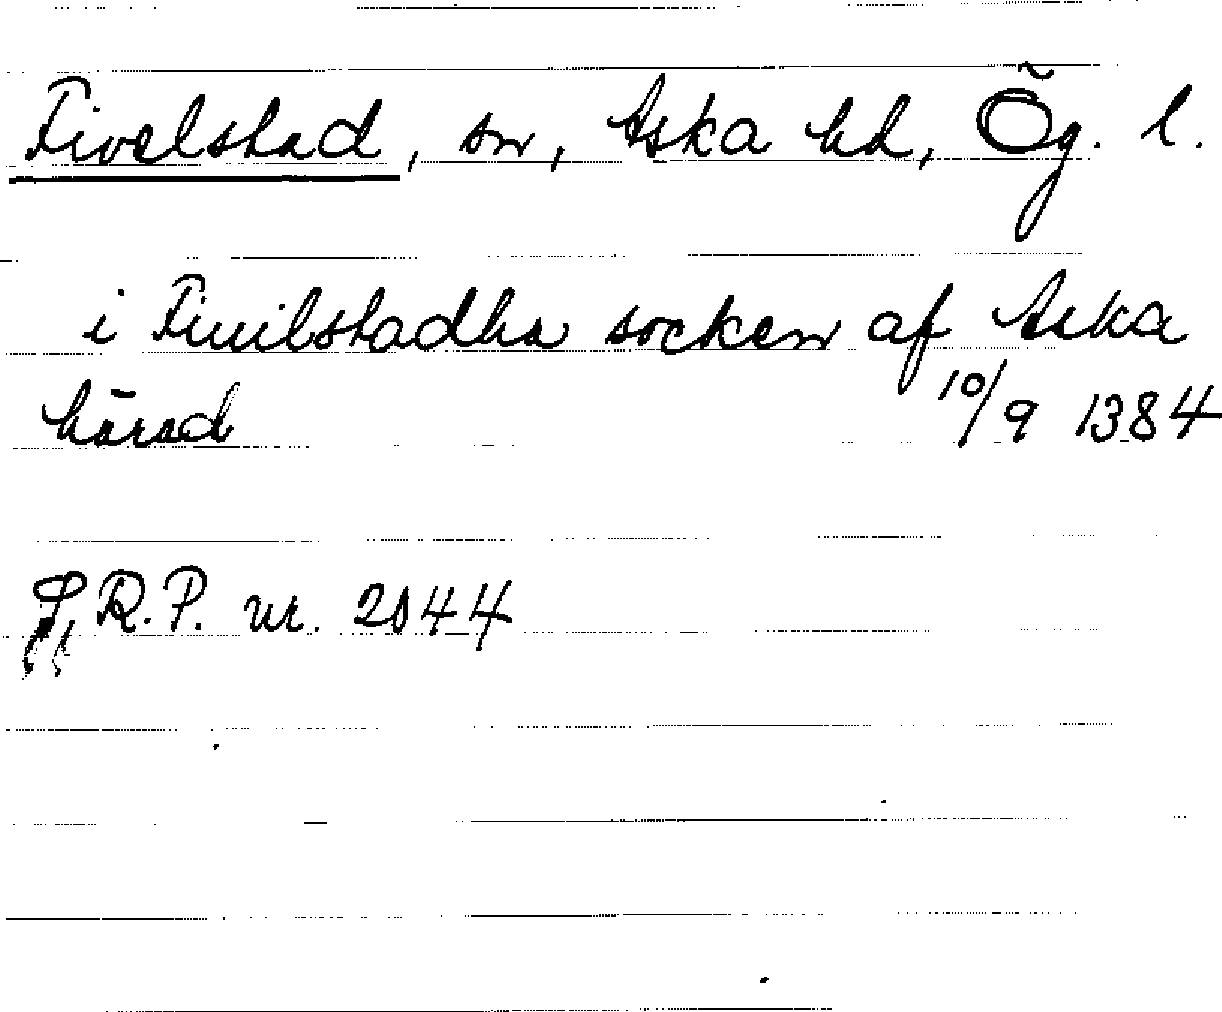 Fivelstad, sn, Aska hd, Ög. l.
i Fiuilstadha socken af Aska
härad 10/9 1384
R.P. nr. 2044